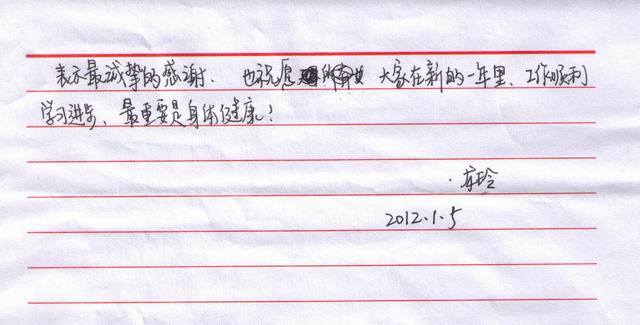 表示最诚挚的感谢、也祝愿 大家在新的一年里、工作顺利
学习进步、最重要是身体健康!
玲
2012.1.5